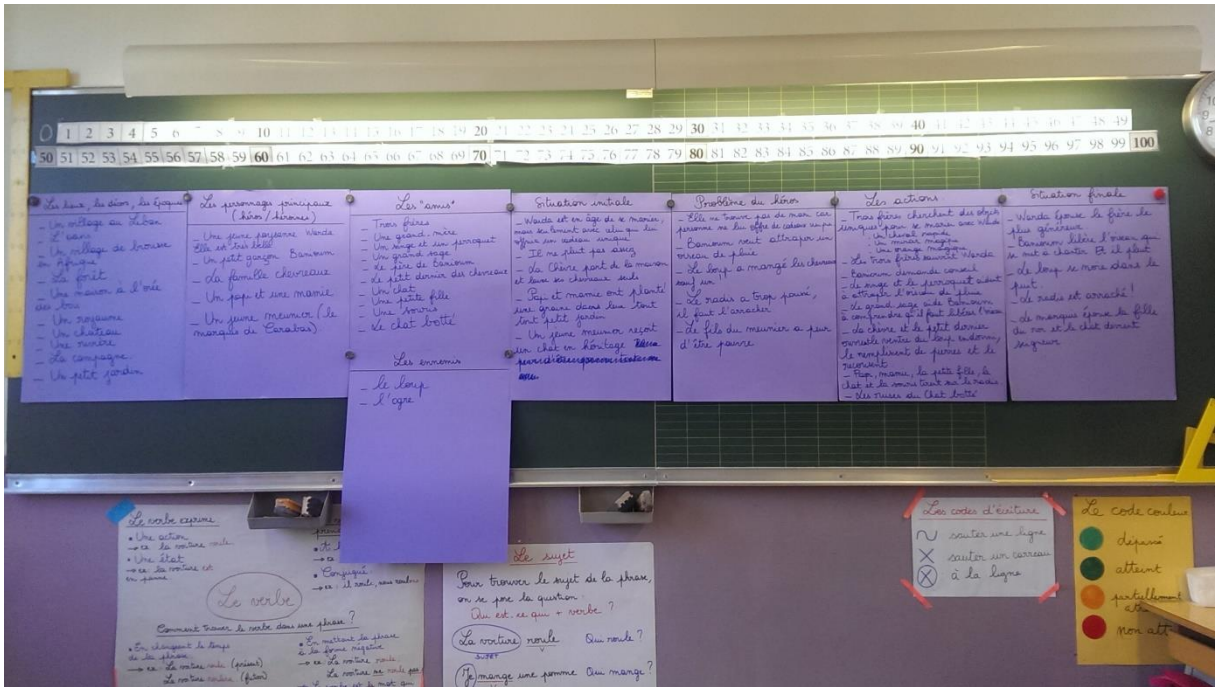 0 1 2 3 4 5 6 7 8 9 10 11 12 13 14 15 16 17 18 19 20 21 22 23 24 25 26 27 28 29 30 31 32 33 34 35 36 37 38 39 40 41 42 43 44 45 46 47 48 49
50 51 52 53 54 55 56 57 58 59 60 61 62 63 64 65 66 67 68 69 70 71 72 73 74 75 76 77 78 79 80 81 82 83 84 85 86 87 88 89 90 91 92 93 94 95 96 97 98 99 100
10
9
8
Les lieux, les décors, les époques
- Un village au Liban
- L'oasis
- Un village de brousse
en Afrique
- La forêt
- Une maison à l'orée
des bois
- Un royaume
- Un château
- Une rivière
- La campagne
- Un petit jardin
Les personnages principaux
(héros / héroïnes)
- Une jeune paysanne Warda
Elle est très belle
- Un petit garçon Banioum
- La famille chevreaux
- Un papi et une mamie
- Un jeune meunier (le
marquis de Carabas)
Les "amis"
- Trois frères
- Une grand-mère
- Un singe et un perroquet
- Un grand sage
- Le père de Banioum
- Le petit dernier des chevreaux
- Un chat
- Une petite fille
- Une souris
- Le chat botté
Les ennemis
- le loup
- l'ogre
Situation initiale
- Warda est en âge de se marier,
mais seulement avec celui qui lui
offrira un cadeau unique
- Il ne pleut pas assez
- La Chèvre part de la maison
et laisse ses chevreaux seuls
- Papi et mamie ont planté
une graine dans leur tout
tout petit jardin
- Un jeune meunier reçoit
un chat en héritage
Problème du héros
- Elle ne trouve pas de mari car
personne ne lui offre de cadeau unique
- Banioum veut attraper un
oiseau de pluie
- Le loup a mangé les chevreaux
sauf un
- Le radis a trop poussé,
il faut l'arracher
- Le fils du meunier a peur
d'être pauvre
Les actions
- Trois frères cherchent des objets
uniques pour se marier avec Warda
. Un cheval rapide
. Un miroir magique
. Une orange magique
- Les Trois frères sauvent Warda
- Banioum demande conseil
- Le singe et le perroquet aident
à attraper l'oiseau de pluie
- Le grand sage aide Banioum
à comprendre qu'il faut libérer l'oiseau
- La chèvre et le petit dernier
ouvrent le ventre du loup endormi,
le remplissent de pierres et le
recousent
- Papi, mamie, la petite fille, le
chat et la souris tirent sur le radis
- Les ruses du Chat botté
Situation finale
- Warda épouse le frère le
plus généreux
- Banioum libère l'oiseau qui
se met à chanter. Et il pleut
- Le loup se noie dans le
puit.
- Le radis est arraché !
- Le marquis épouse la fille
du roi et le chat devient
seigneur
Le verbe exprime
• Une action
→ ex: la voiture roule.
• Une état
→ ex: la voiture est
en panne
• Conjugué
→ ex: il roule, nous roulons
Le verbe
Comment trouver le verbe dans une phrase ?
• En changeant le temps
de la phrase
→ ex: La voiture roule (présent)
La voiture roulera (futur)
• En mettant la phrase
à la forme négative
→ ex: La voiture roule
La voiture ne roule pas
Le sujet
Pour trouver le sujet de la phrase,
on se pose la question:
Qui est-ce qui + verbe ?
La voiture roule Qui roule ?
SUJET
Je mange une pomme Qui mange ?
Les codes d'écriture
sauter une ligne
sauter un carreau
à la ligne
Le code couleur
dépassé
atteint
partiellement
non att